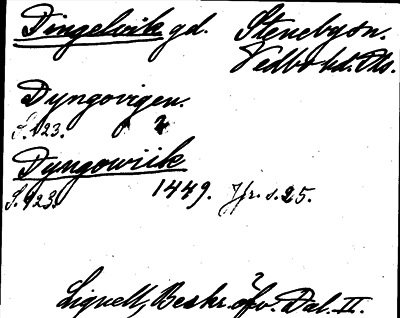 Dingelvik gd. Stenebysn.
Vedbo hd. Dls.
Dyngovigen.
S. 123. 2
Dyngowiik
S. 123. 1449. Jfr. s. 25.
Lignell, Beskr. öfv. Dal. II.
?